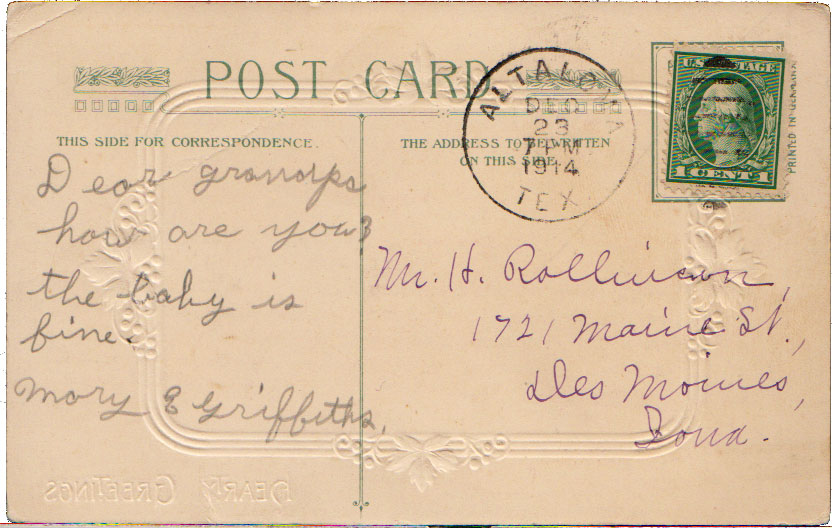 POST CARD
THIS SIDE FOR CORRESPONDENCE.
THE ADDRESS TO BE WRITTEN
ON THIS SIDE.
ALTA LOMA
DEC
23
7 PM
1914
TEX
U.S. POSTAGE
1 CENT 1
PRINTED IN GERMANY
Dear grandpa
how are you?
the baby is
fine.
Mary E Griffeths.
Mr. H. Rollinson,
1721 Maine St.,
Des Moines,
Iowa.
HEARTY GREETINGS